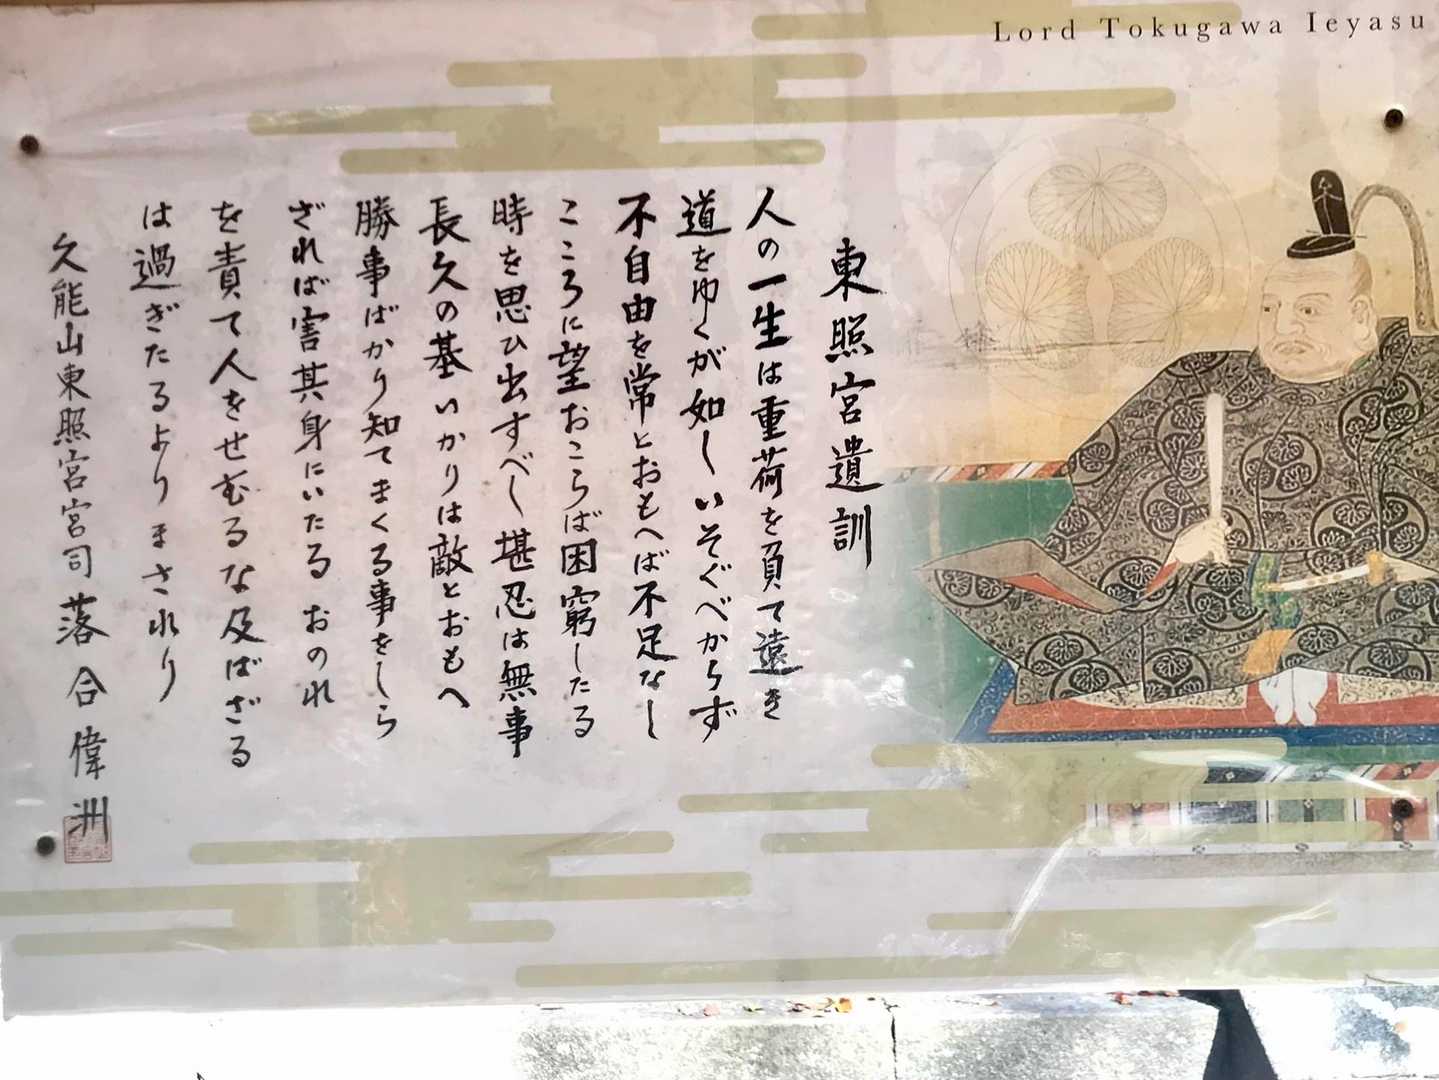 Lord Tokugawa Ieyasu
東照宮遺訓
人の一生は重荷を負て遠き
道をゆくが如しいそぐべからず
不自由を常とおもへば不足なし
こころに望おこらば困窮したる
時を思ひ出すべし堪忍は無事
長久の基いかりは敵とおもへ
勝事ばかり知てまくる事をしら
ざれば害其身にいたる おのれ
を責て人をせむるな及ばざる
は過ぎたるよりまされり
久能山東照宮宮司 落合偉洲